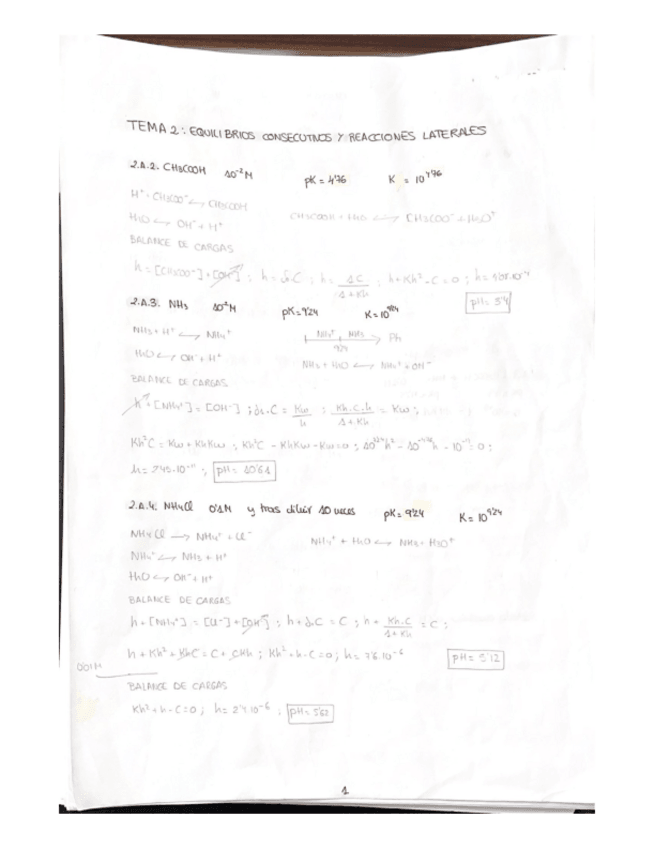 TEMA 2: EQUILIBRIOS CONSECUTIVOS Y REACCIONES LATERALES
2.A.2. CH3COOH 10⁻²M pK = 4'76 K = 10^4'76
H⁺ + CH3COO⁻ <-> CH3COOH
H2O <-> OH⁻ + H⁺ CH3COOH + H2O <-> CH3COO⁻ + H3O⁺
BALANCE DE CARGAS
h = [CH3COO⁻] + [OH⁻] ; h = δ₀C ; h = 1C / 1+Kh ; h + Kh² - C = 0 ;
pH = 3'4
2.A.3. NH3 10⁻²M pK = 9'24 K = 10^9'24
NH3 + H⁺ <-> NH4⁺ NH4⁺ NH3 -> Ph
9'24
H2O <-> OH⁻ + H⁺ NH3 + H2O <-> NH4⁺ + OH⁻
BALANCE DE CARGAS
h + [NH4⁺] = [OH⁻] ; δ₁·C = Kw / h ; Kh·C·h / 1+Kh = Kw ;
Kh²C = Kw + KhKw ; Kh²C - KhKw - Kw = 0 ;
h = 2'45·10⁻¹¹ ; pH = 10'61
2.A.4. NH4Cl 0'1M y tras diluir 10 veces pK = 9'24 K = 10^9'24
NH4Cl -> NH4⁺ + Cl⁻ NH4⁺ + H2O <-> NH3 + H3O⁺
NH4⁺ <-> NH3 + H⁺
H2O <-> OH⁻ + H⁺
BALANCE DE CARGAS
h + [NH4⁺] = [Cl⁻] + [OH⁻] ; h + δ₁C = C ; h + Kh·C / 1+Kh = C ;
h + Kh² + KhC = C + CKh ; Kh² + h - C = 0 ; h = 7'6·10⁻⁶ pH = 5'12
0'01M
BALANCE DE CARGAS
Kh² + h - C = 0 ; h = 2'4·10⁻⁶ ; pH = 5'62
1